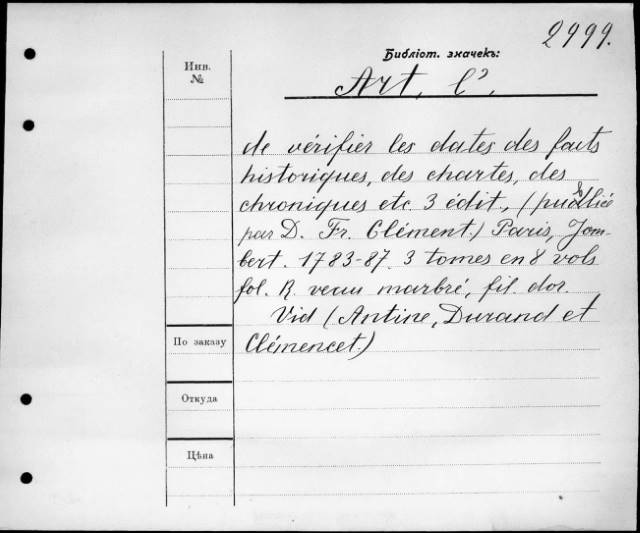 2999.
Библіот. значекъ:
Инв.
№
Art, l',
de vérifier les dates des faits
historiques, des chartes, des
chroniques etc. 3 édit., (publiée
par D. Fr. Clément.) Paris, Jom-
bert. 1783-87. 3 tomes en 8 vols
fol. R. veau marbré, fil. dor.
Vid (Antine, Durand et
Clémencet.)
По заказу
Откуда
Цѣна